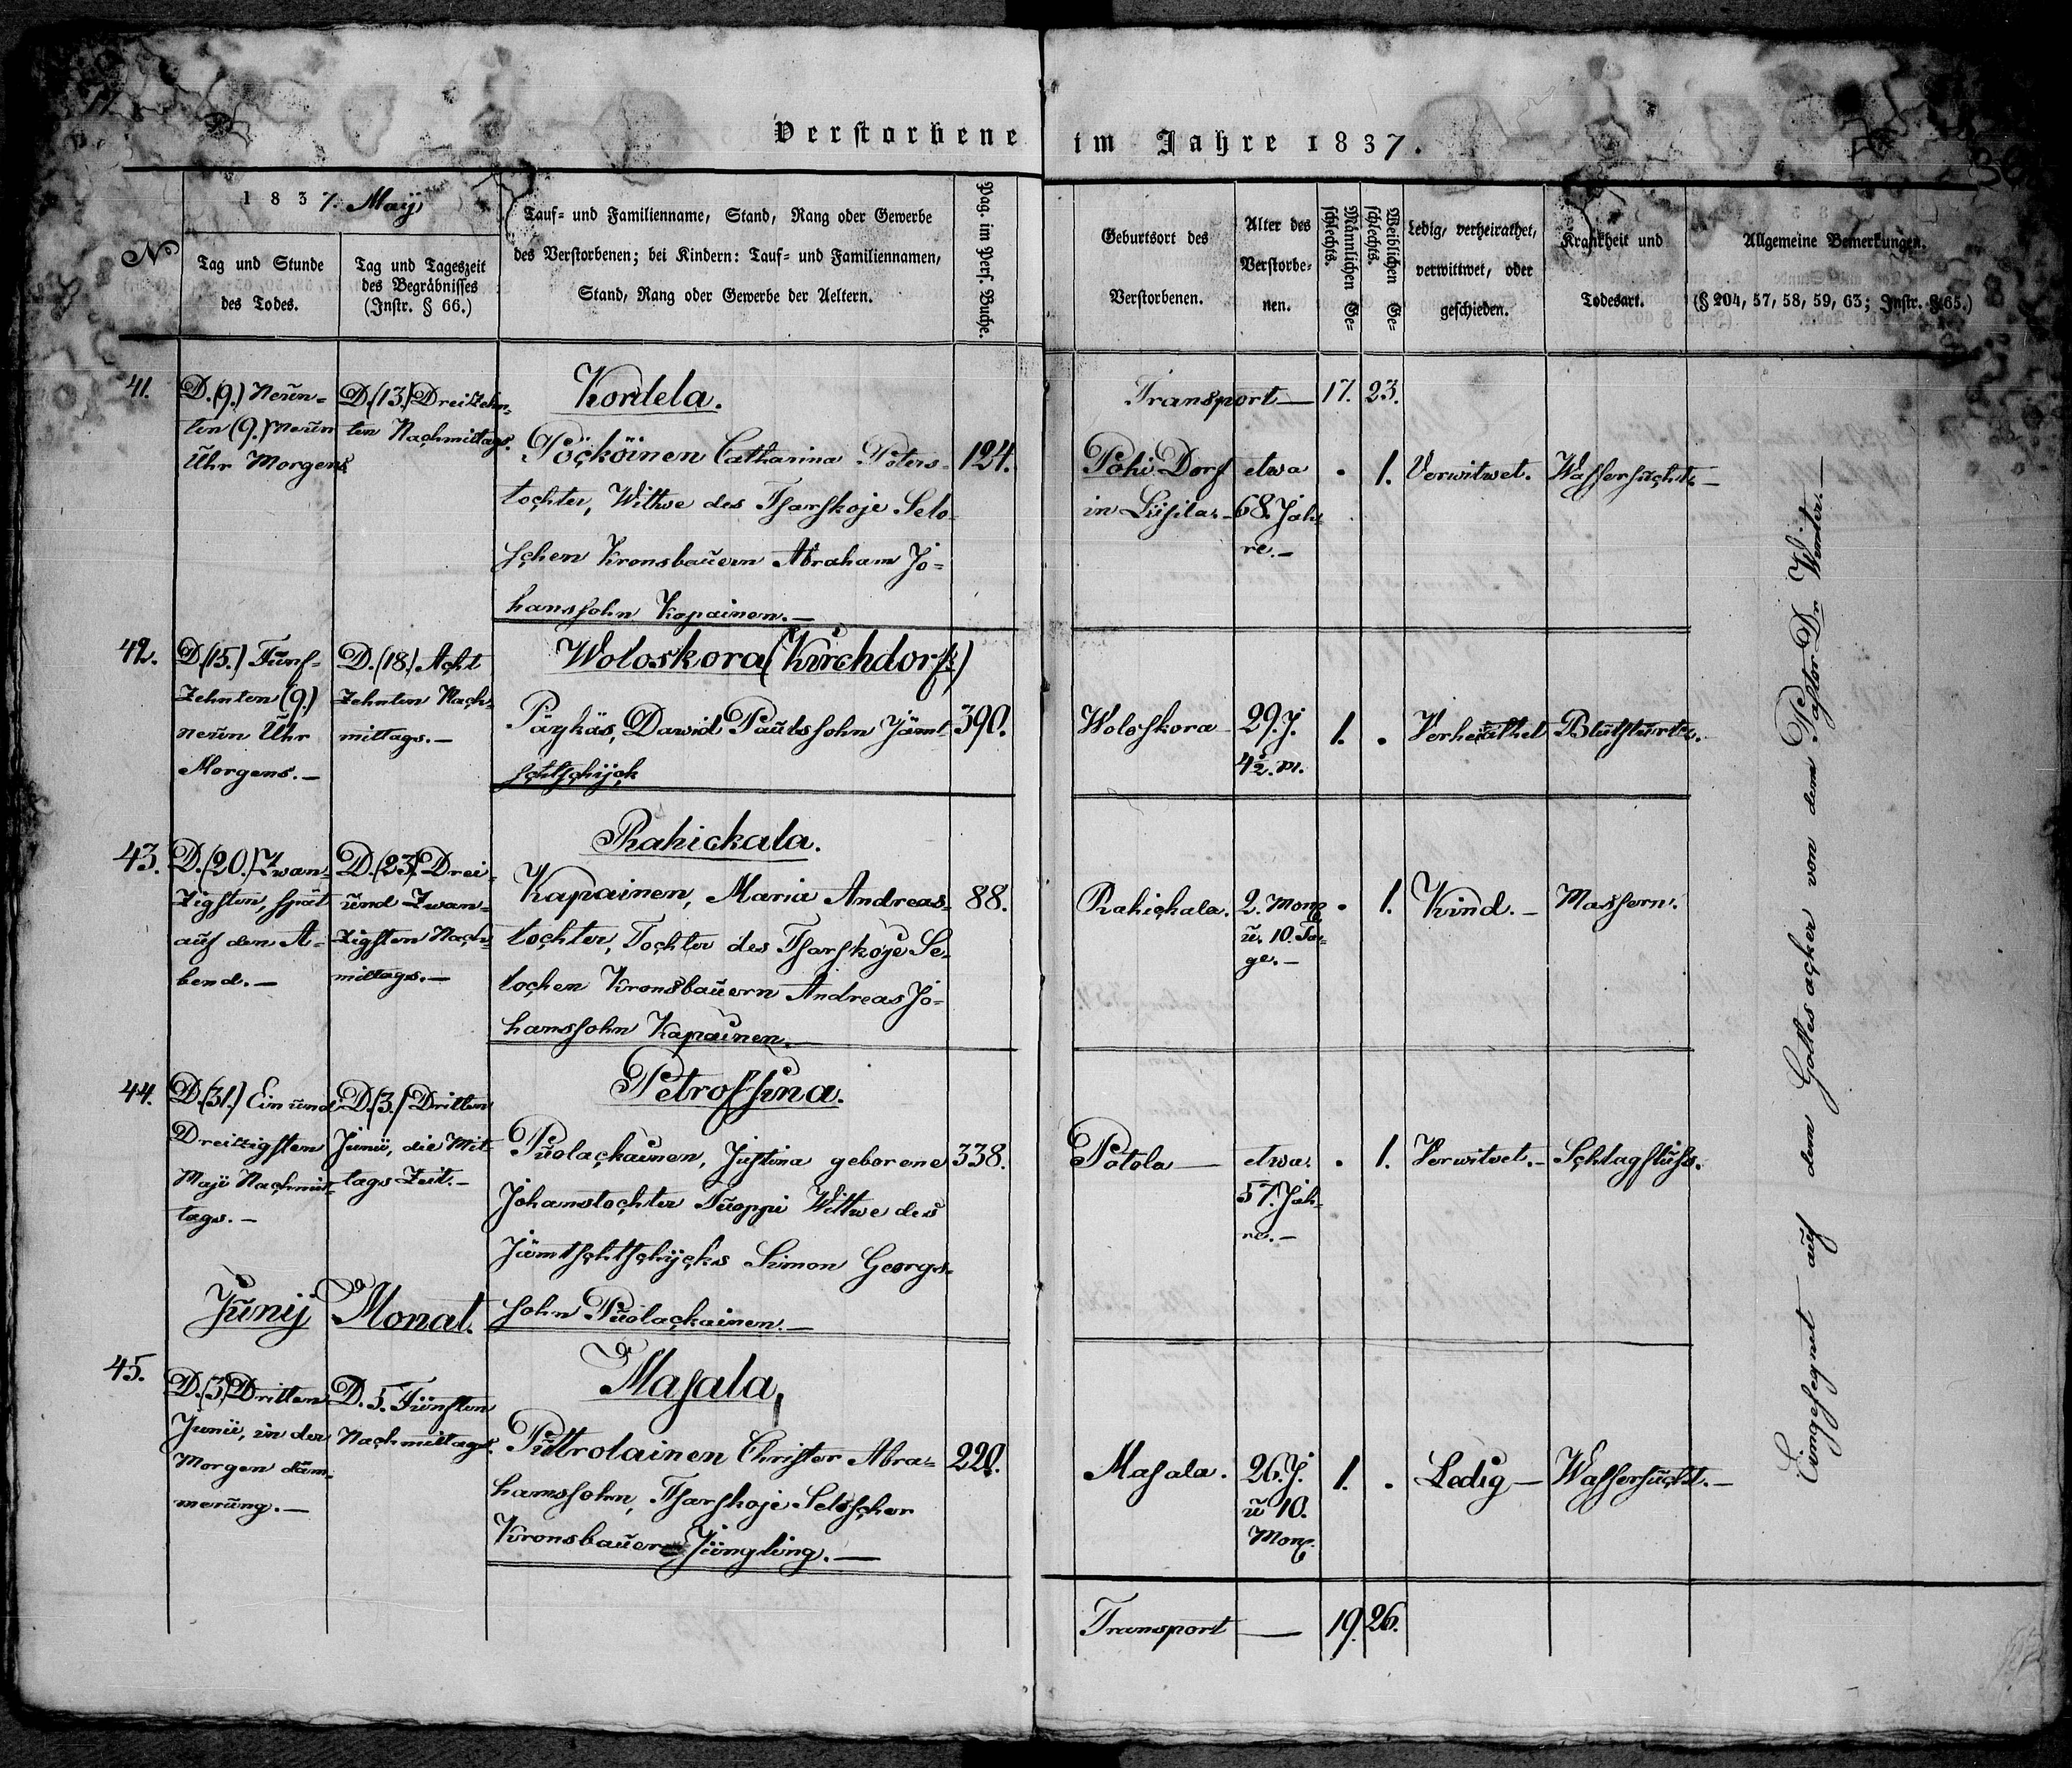 Verstorbene im Jahre 1837.
1837. Maij
№
Tag und Stunde
des Todes.
Tag und Tageszeit
des Begräbnisses
(Instr. § 66.)
Tauf= und Familienname, Stand, Rang oder Gewerbe
des Verstorbenen; bei Kindern: Tauf= und Familiennamen,
Stand, Rang oder Gewerbe der Aeltern.
Pag. im Pers. Buche.
Geburtsort des
Verstorbenen.
Alter des
Verstorbe=
nen.
Männlichen Ge=
schlechts.
Weiblichen Ge=
schlechts.
Ledig, verheirathet,
verwittwet, oder
geschieden.
Krankheit und
Todesart.
Allgemeine Bemerkungen.
(§ 204, 57, 58, 59, 63; Instr. § 65.)
Transport — 17. 23.
41.
D. (9.) Neun=
ten (9.) Neun
Uhr Morgens
D. (13.) Dreizehn=
ten Nachmittags.
Kordela.
Pöcköinen Catharina Peters=
tochter, Wittwe des Tsarskoje Selo=
schen Kronsbauern Abraham Jo=
hanssohn Kapainen.—
124.
Pohi Dorf
in Liisila.—
etwa
68. Jah=
re.—
. 1. Verwitwet. Wassersucht.—
42.
D. (15.) Fünf=
zehnten (9.)
neun Uhr
Morgens.—
D. (18.) Acht
zehnten Nach=
mittags.—
Woloskora (Kirchdorf.)
Päykäs, Dawid Paulssohn Jämt
schtschijck
390.
Woloskora
29. J.
4½. M.
1. . Verheiathet Blutsturtz.
43.
D. (20.) Zwan=
zigsten, spät
auf den A=
bend.—
D. (23.) Drei=
und Zwan=
zigsten Nach=
mittags.—
Rahickala.
Kapainen, Maria Andreas=
tochter, Tochter des Tsarskoje Se=
loschen Kronsbauern Andreas Jo=
hanssohn Kapainen.—
88.
Rahickala.
2. Mon.
u. 10. Ta=
ge.—
. 1. Kind.— Massern.
44.
D. (31.) Ein und
Dreissigsten
Maji Nachmit=
tags.—
D. (3.) Dritten
Junii, die Mit=
tags Zeit.—
Petrossina.
Puolackainen, Justina geborene
Johanstochter Tuoppi Wittwe des
Jämtschtschijcks Simon Georgs=
sohn Puolackainen.—
338.
Potola —
etwa.
57. Jah=
re.—
. 1. Verwitvet.— Schlagfluss.
Junij Monat.
45.
D. (3) Dritten
Junii, in der
Morgen däm=
merung.—
D. 5. Fünften
Nachmittags.
Masala,
Puttrolainen Christer Abra=
hamssohn, Tsarskoje Seloscher
Kronsbauer Jüngling.—
220.
Masala.
26. J.
u 10.
Mon.
1. . Ledig — Wassersucht.—
Transport — 19. 26.
Eingesegnet auf dem Gottesacker von dem Pastor Dr. Winter.—